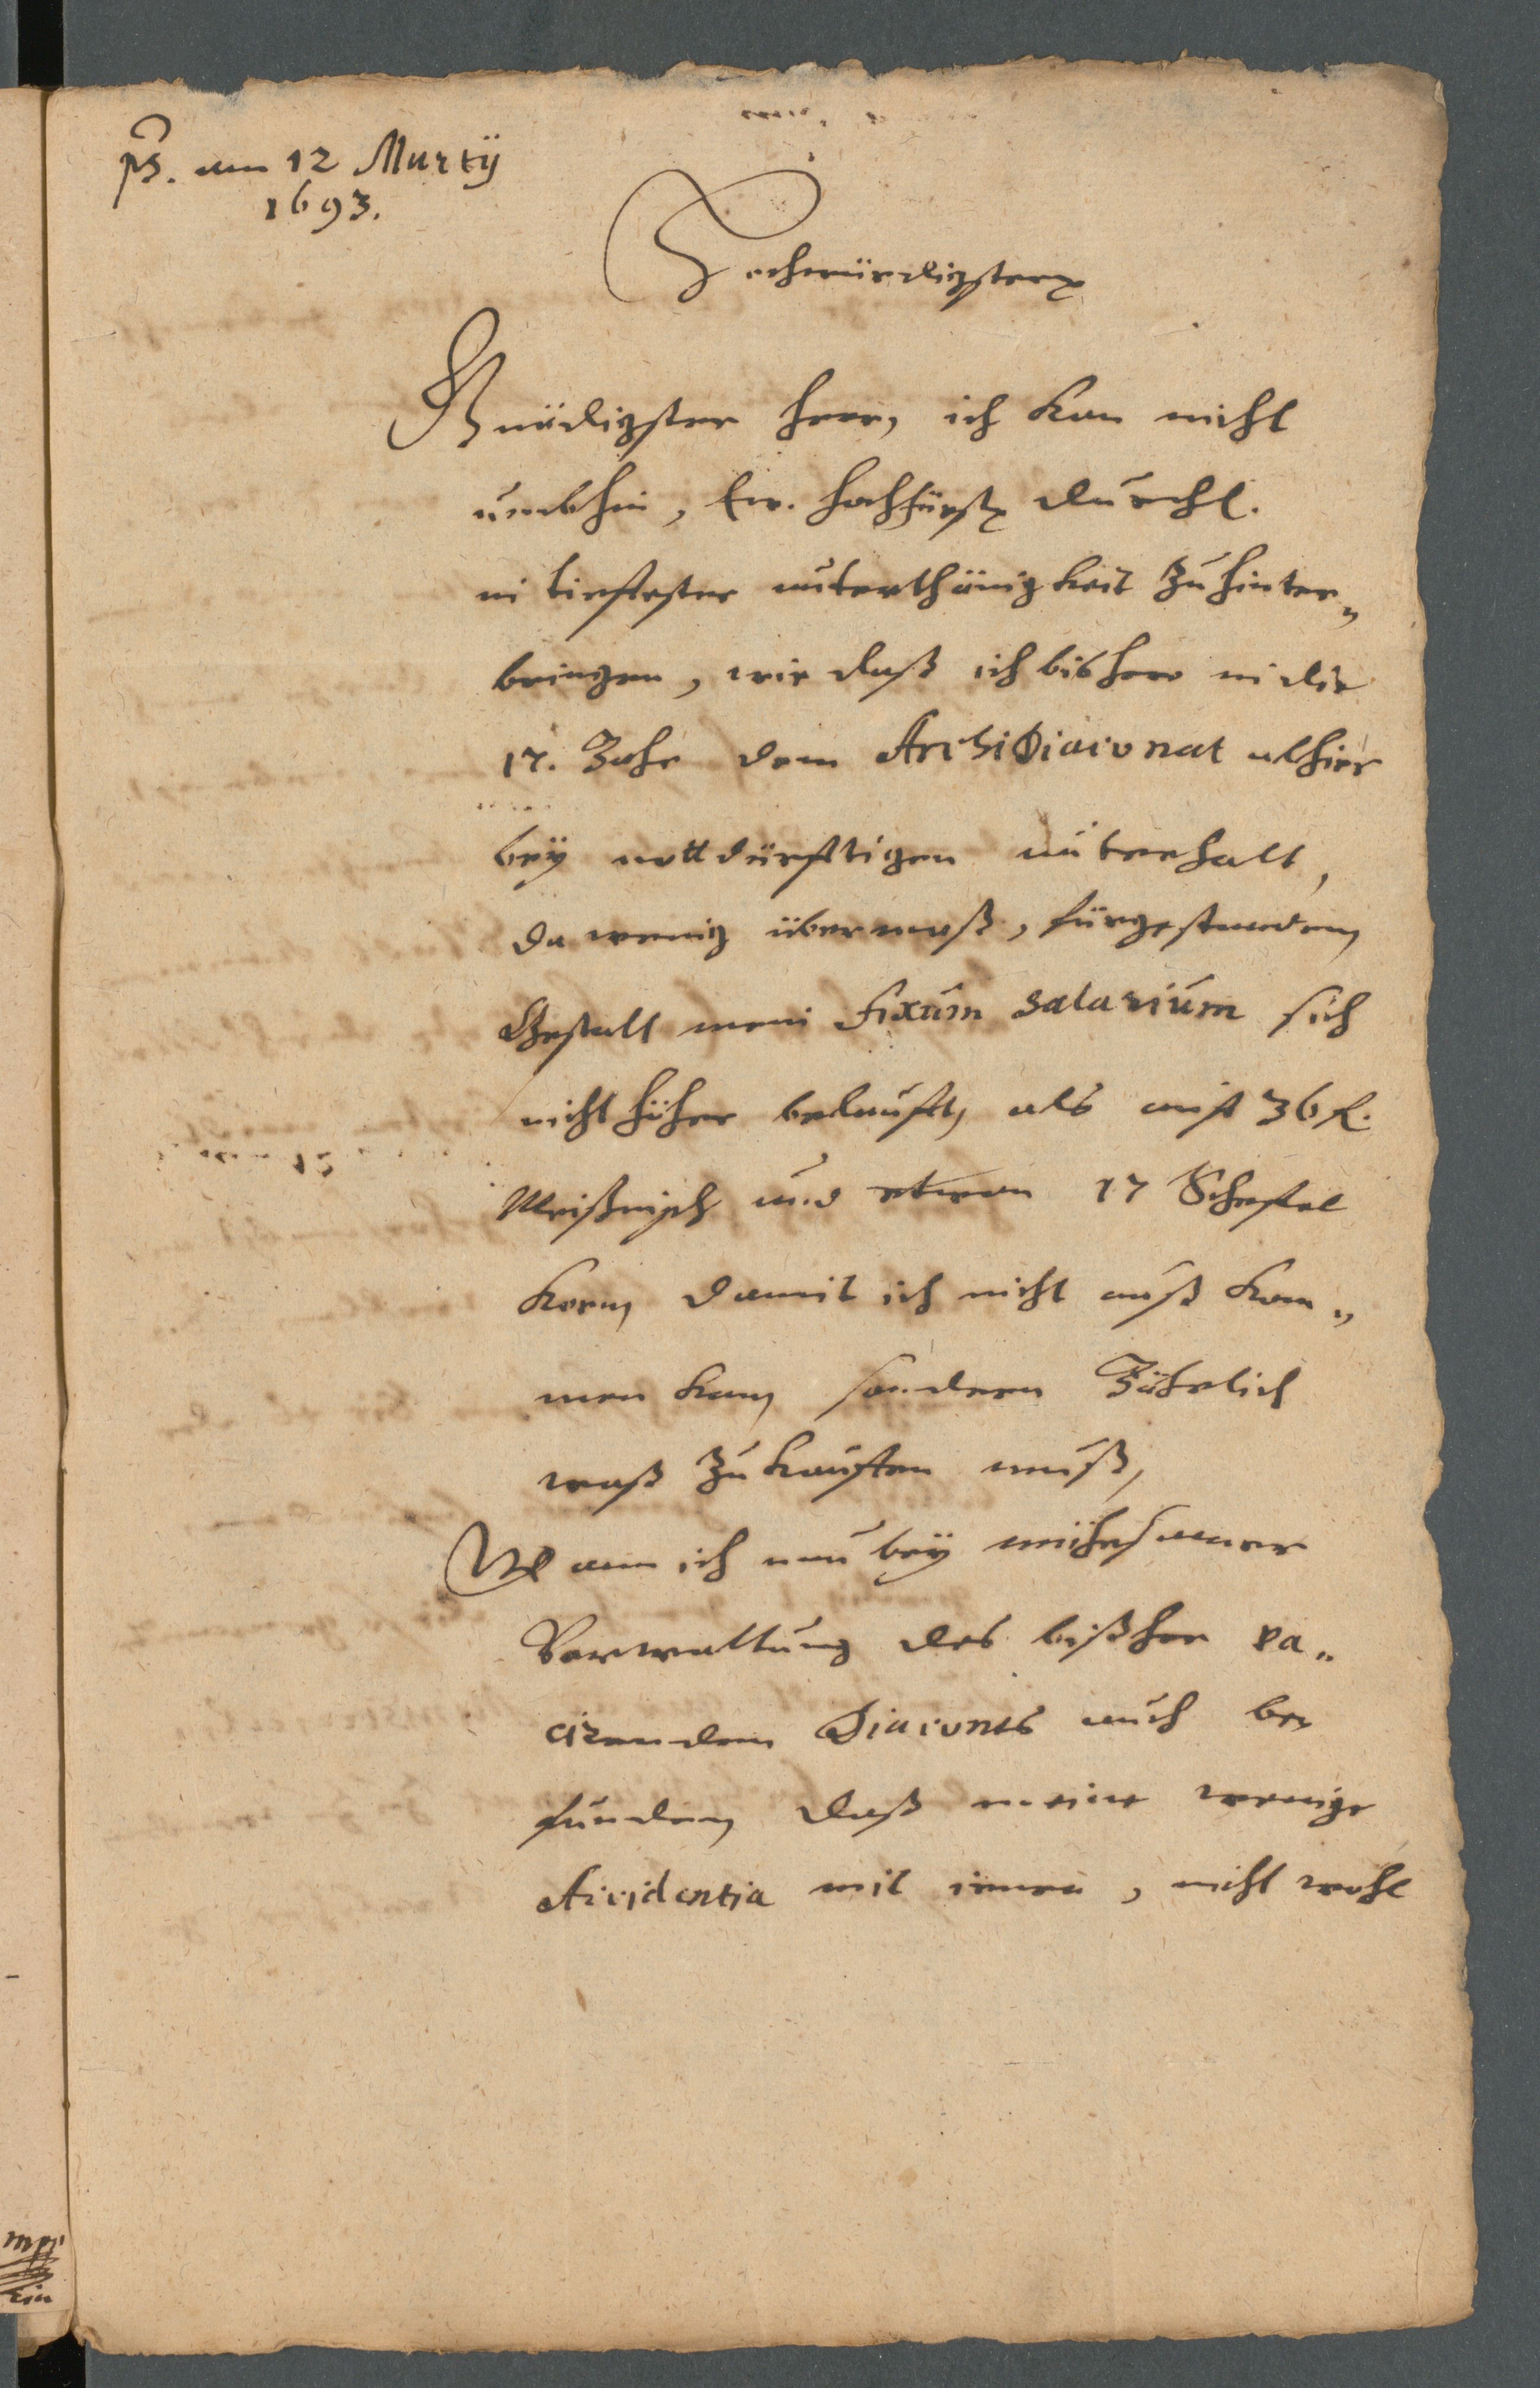 ps. am 12 Martij
1693.
Hochwürdigster
Gnädigster Herr, ich kan nicht
umbhin, Ew. Hochfürstl Durchl.
in tieffester unterthänigkeit zu hinter„
bringen, wie daß ich bishero in die
17. Jahr dem ArchiDiaconat alhier
beÿ nottdürfftigen unterhalt,
da wenig übermaß, fürgestanden
Gestalt mein fixum salarium sich
nicht höher beläufft, als auff 36 fl.
Meißnisch und etwan 17 Scheffel
Korn, damit ich nicht auß kom„
men kan, sondern Jährlich
waß zukauffen muß,
Wann ich nun beÿ mühesamer
Verwaltung des bißher va„
cirenden Diaconts auch be
funden, daß meine wenige
Accidentia mit innen, nicht wohl